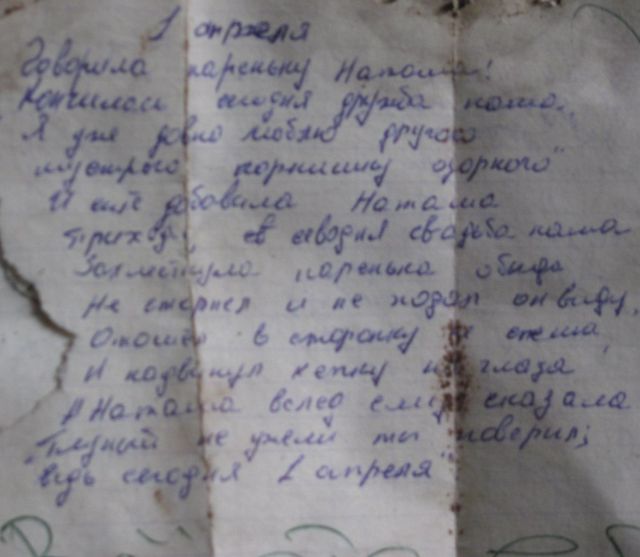 1 апреля
Говорила пареньку Наташа!
Кончилась сегодня дружба наша..
Я уже довно люблю другого
шустрого парнишку озорного"
И еще добовила Наташа
Приходи, сегодня свадьба наша
Захлестнула паренька обида
Не стерпел и не подал он виду,
Отошел в сторонку не спеша,
И надвинул кепку на глаза
А Наташа вслед ему сказала
"Глупый не ужели ты поверил;
ведь сегодня 1 апреля"